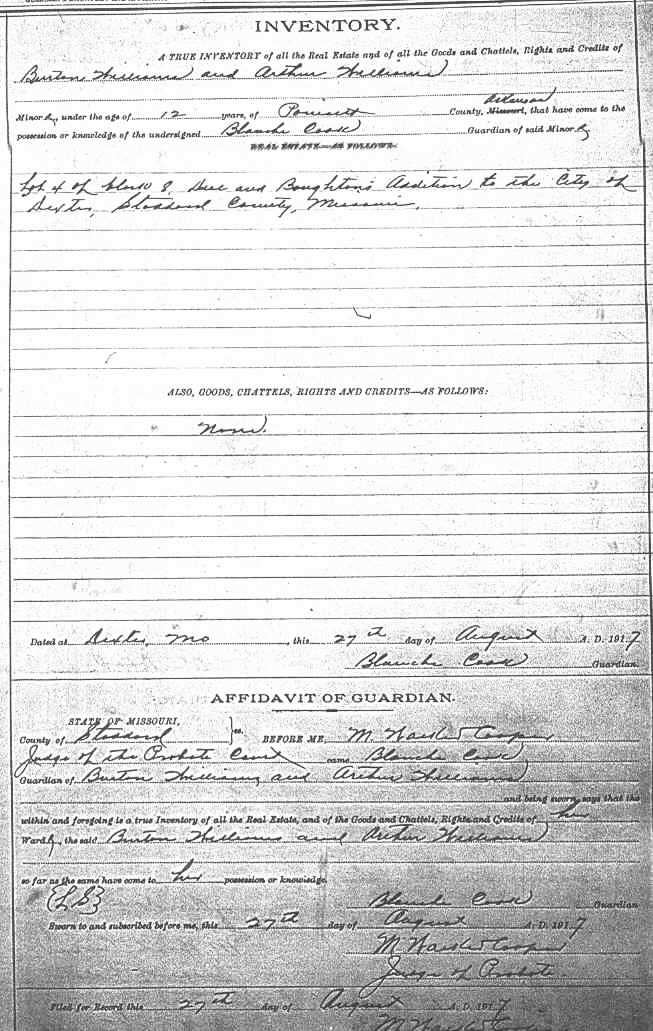 INVENTORY.
A TRUE INVENTORY of all the Real Estate and of all the Goods and Chattels, Rights and Credits of
Burton Williams and Arthur Williams
Arkansas
Minors, under the age of 12 years, of Poinsett County, Missouri, that have come to the
possession or knowledge of the undersigned Blanche Cook Guardian of said Minors
REAL ESTATE—AS FOLLOWS:
Lot 4 of block 8, and Boughton's Addition to the City of
Dexter, Stoddard County, Missouri.
ALSO, GOODS, CHATTELS, RIGHTS AND CREDITS—AS FOLLOWS:
None.
Dated at Dexter, Mo, this 27th day of August A. D. 1917
Blanche Cook Guardian.
AFFIDAVIT OF GUARDIAN.
STATE OF MISSOURI,
County of Stoddard } ss. BEFORE ME, M. Cooper
Judge of the Probate Court came Blanche Cook
Guardian of Burton Williams and Arthur Williams
and being sworn, says that the
within and foregoing is a true Inventory of all the Real Estate, and of the Goods and Chattels, Rights and Credits of her
Wards, the said Burton Williams and Arthur Williams
so far as the same have come to her possession or knowledge.
{L.S} Blanche Cook Guardian
Sworn to and subscribed before me, this 27th day of August A. D. 1917
M Cooper
Judge of Probate.
Filed for Record this 27th day of August A. D. 1917